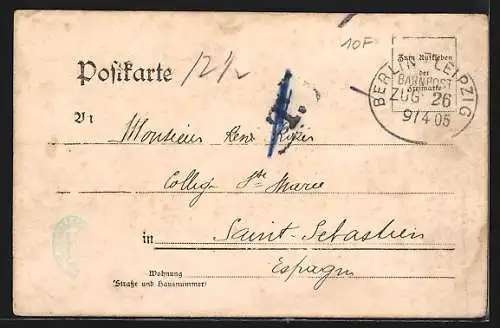 10F
Zum Aufkleben
der
Freimarke
BERLIN LEIPZIG
BAHNPOST
ZUG 26
9/4 05
Postkarte
12½
T.
An
Monsieur René
Collège Ste Marie
in Saint-Sebastien
Espagne
Wohnung
(Straße und Hausnummer)